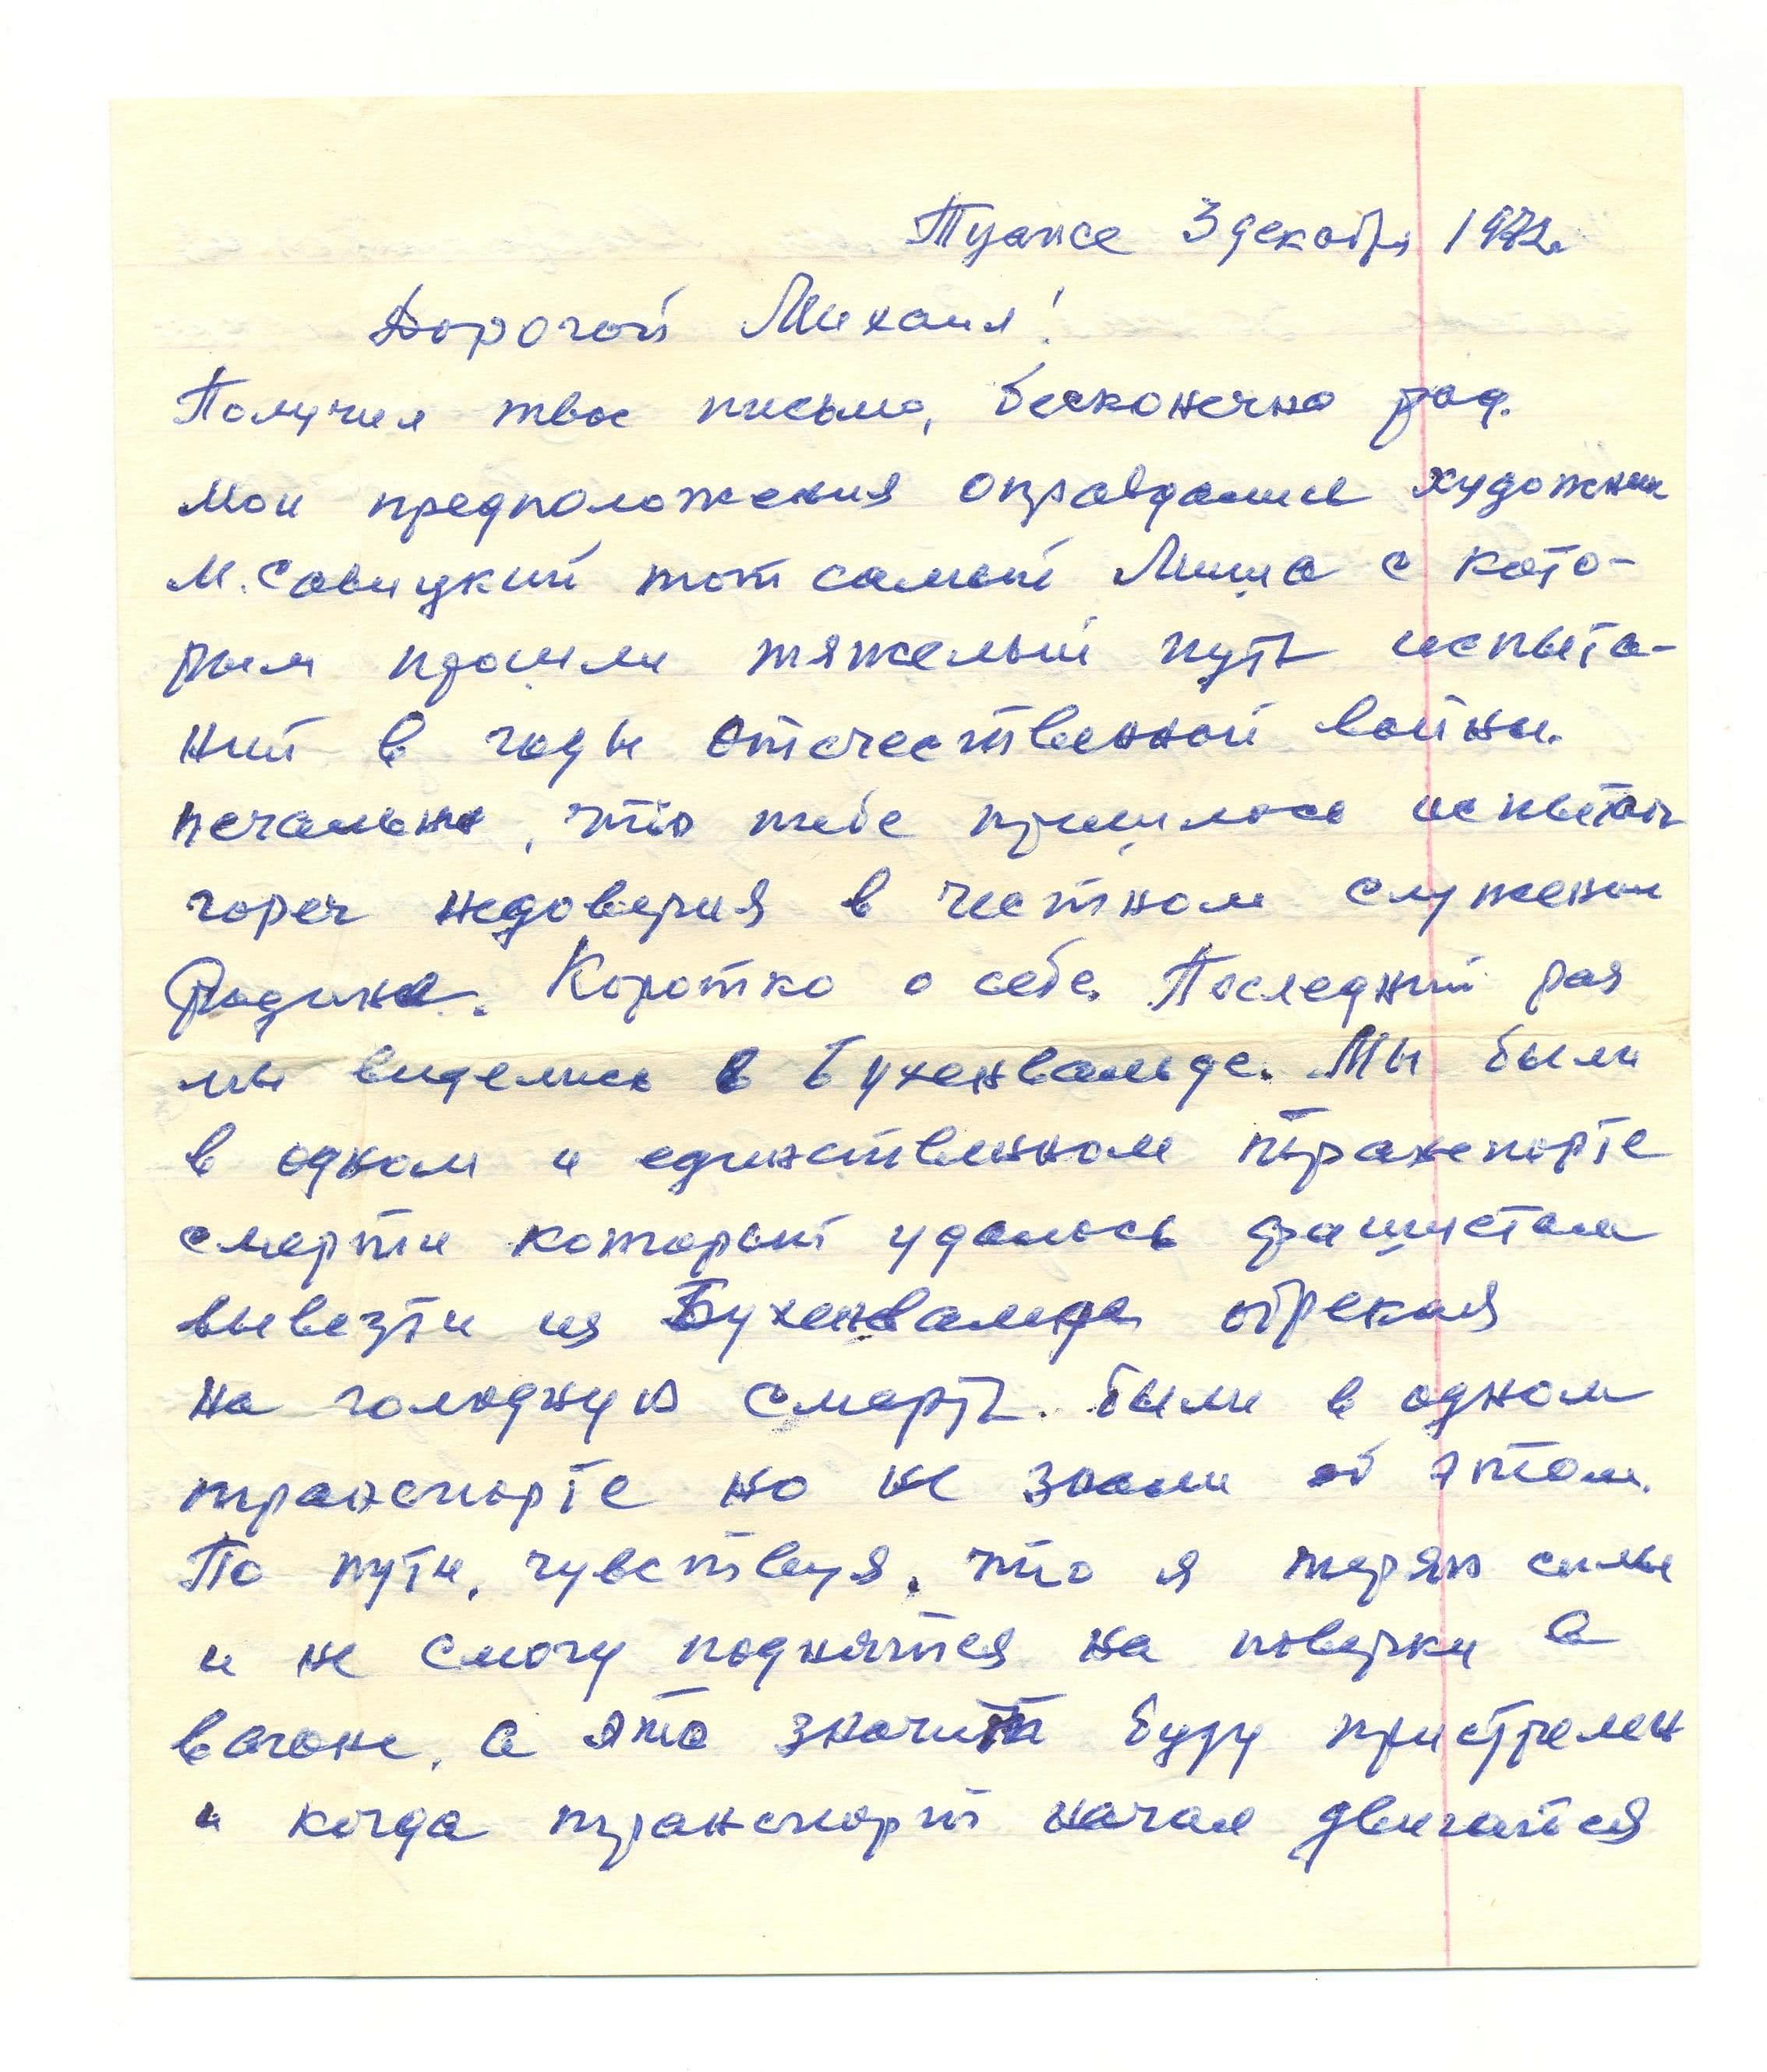 Туапсе 3 декабря 1972г.
Дорогой Михаил!
Получил твое письмо, бесконечно рад.
Мои предположения оправдались художник
М. Савицкий тот самый Миша с кото-
рым прошли тяжелый путь испыта-
ний в годы Отечественной войны.
печально, что тебе пришлось испытать
гореч недоверия в честном служении
Родине. Коротко о себе. Последний раз
мы виделись в Бухенвальде. Мы были
в одном и единственном транспорте
смерти который удалось фашистам
вывезти из Бухенвальда обрекая
на голодную смерть. были в одном
транспорте но не знали об этом.
По пути, чувствуя, что я теряю силы
и не смогу поднятся на поверку в
вагоне, а это значит буду пристрелен
и когда транспорт начал двигатся